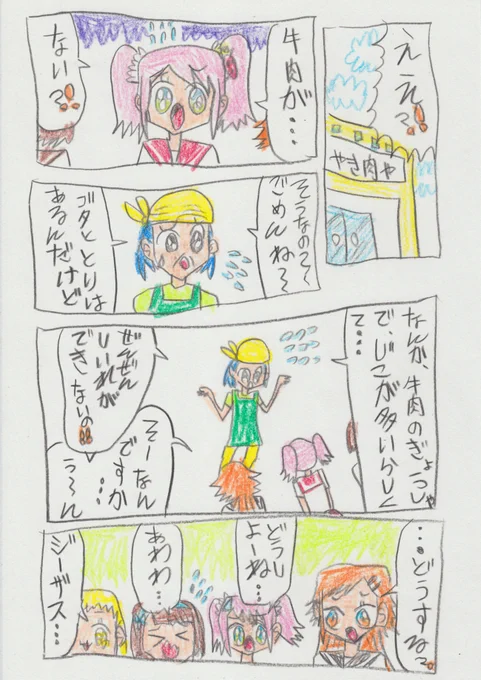 ええ?!
やき肉や
牛肉が…
ない?!
そうなの〜
ごめんね〜
ブタととりは
あるんだけど
なんか、牛肉のぎょうしゃ
で、じこが多いらしく
て…
ぜんぜん
しいれが
できないの!!
そーなん
ですか
…
う〜ん
…どうする?
どうし
よーね…
あわわ…
ジーザス…